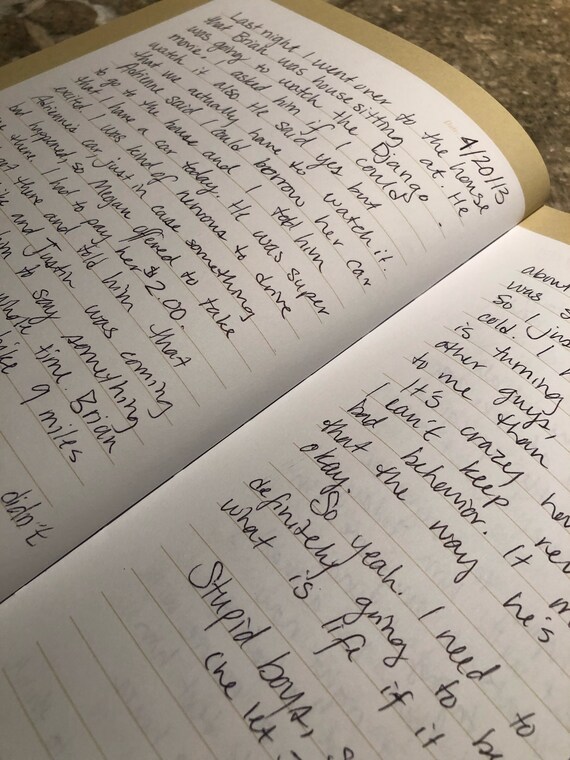 4/20/13
Last night I went over to the house
that Brian was house sitting at. He
was going to watch the Django
movie. I asked him if I could
watch it also. He said yes but
that we actually have to watch it.
Adrienne said I could borrow her car
to go to the house and I told him
that I have a car today. He was super
excited I was kind of nervous to drive
Adriennes car, just in case something
bad happened, so Megan offered to take
there. I had to pay her $2.00.
there and told him that
and Justin was coming
him to say something
whole time Brian
like 9 miles
didn't
about
was
So I just
cold. I
is turning
other guys,
to me than
It's crazy
I can't keep
bad behavior. It
that the way he's
okay.
So yeah. I need to
definitely going to
what is life if it
Stupid boys,
One let